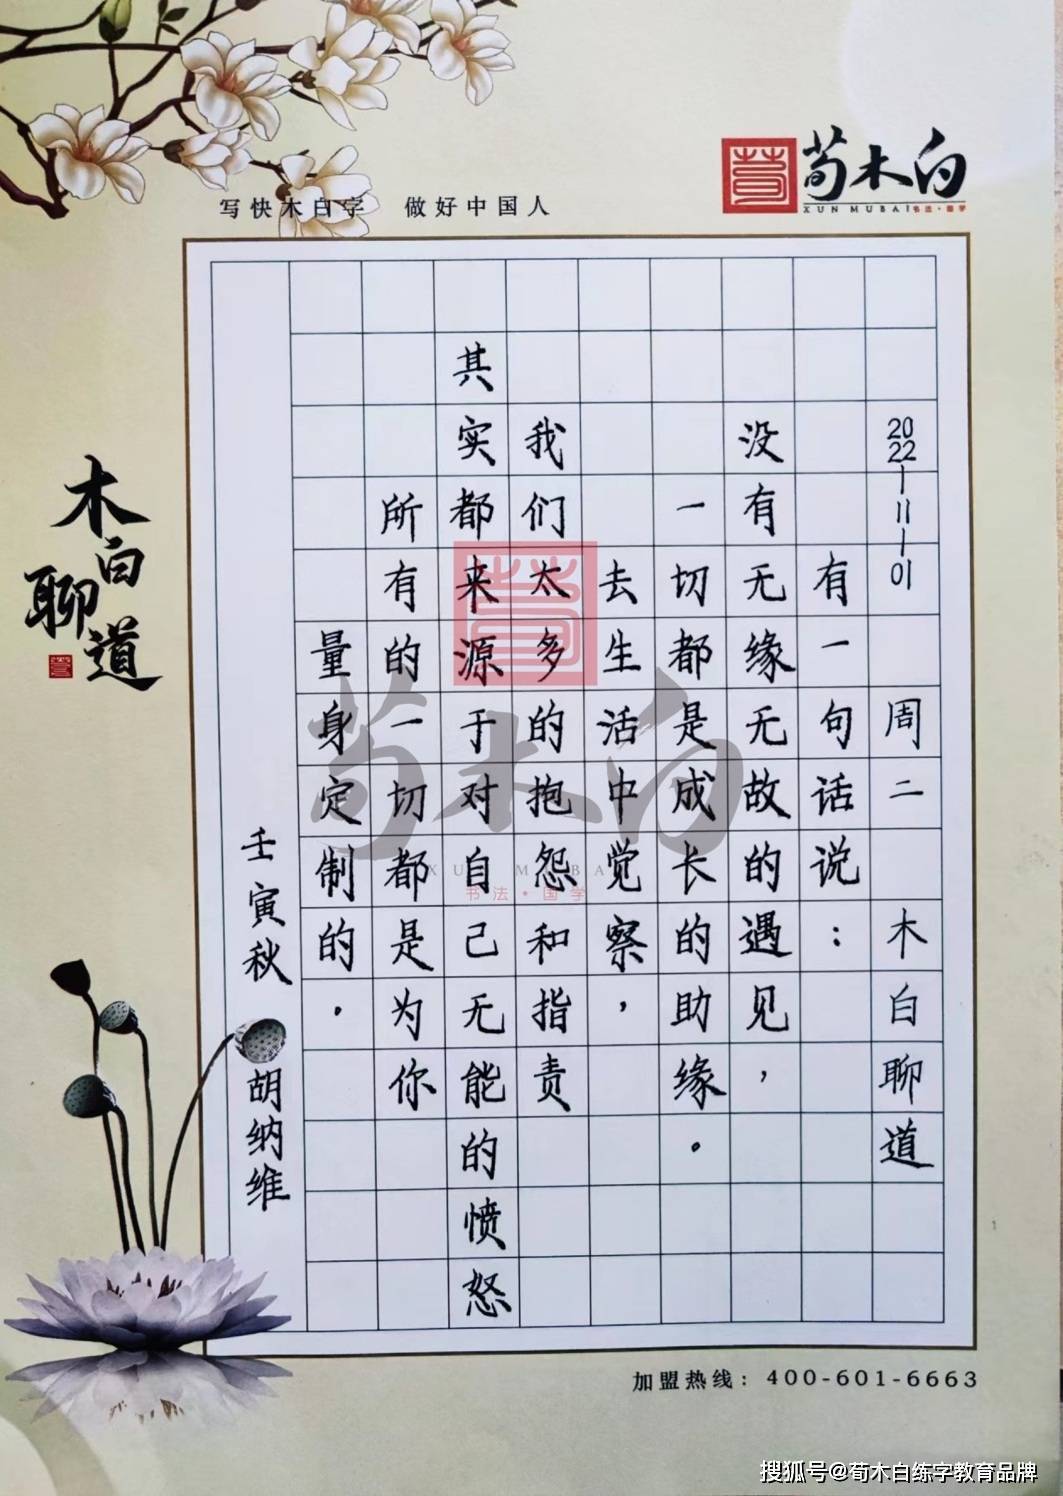 写快木白字 做好中国人
荀木白
XUN MUBAI 书法·国学
木白聊道
2022-11-01 周二 木白聊道
有一句话说：
没有无缘无故的遇见，
一切都是成长的助缘。
去生活中觉察，
我们太多的抱怨和指责
其实都来源于对自己无能的愤怒
所有的一切都是为你
量身定制的。
壬寅秋 胡纳维
荀木白
XUN MUBAI
书法·国学
加盟热线：400-601-6663
搜狐号@荀木白练字教育品牌